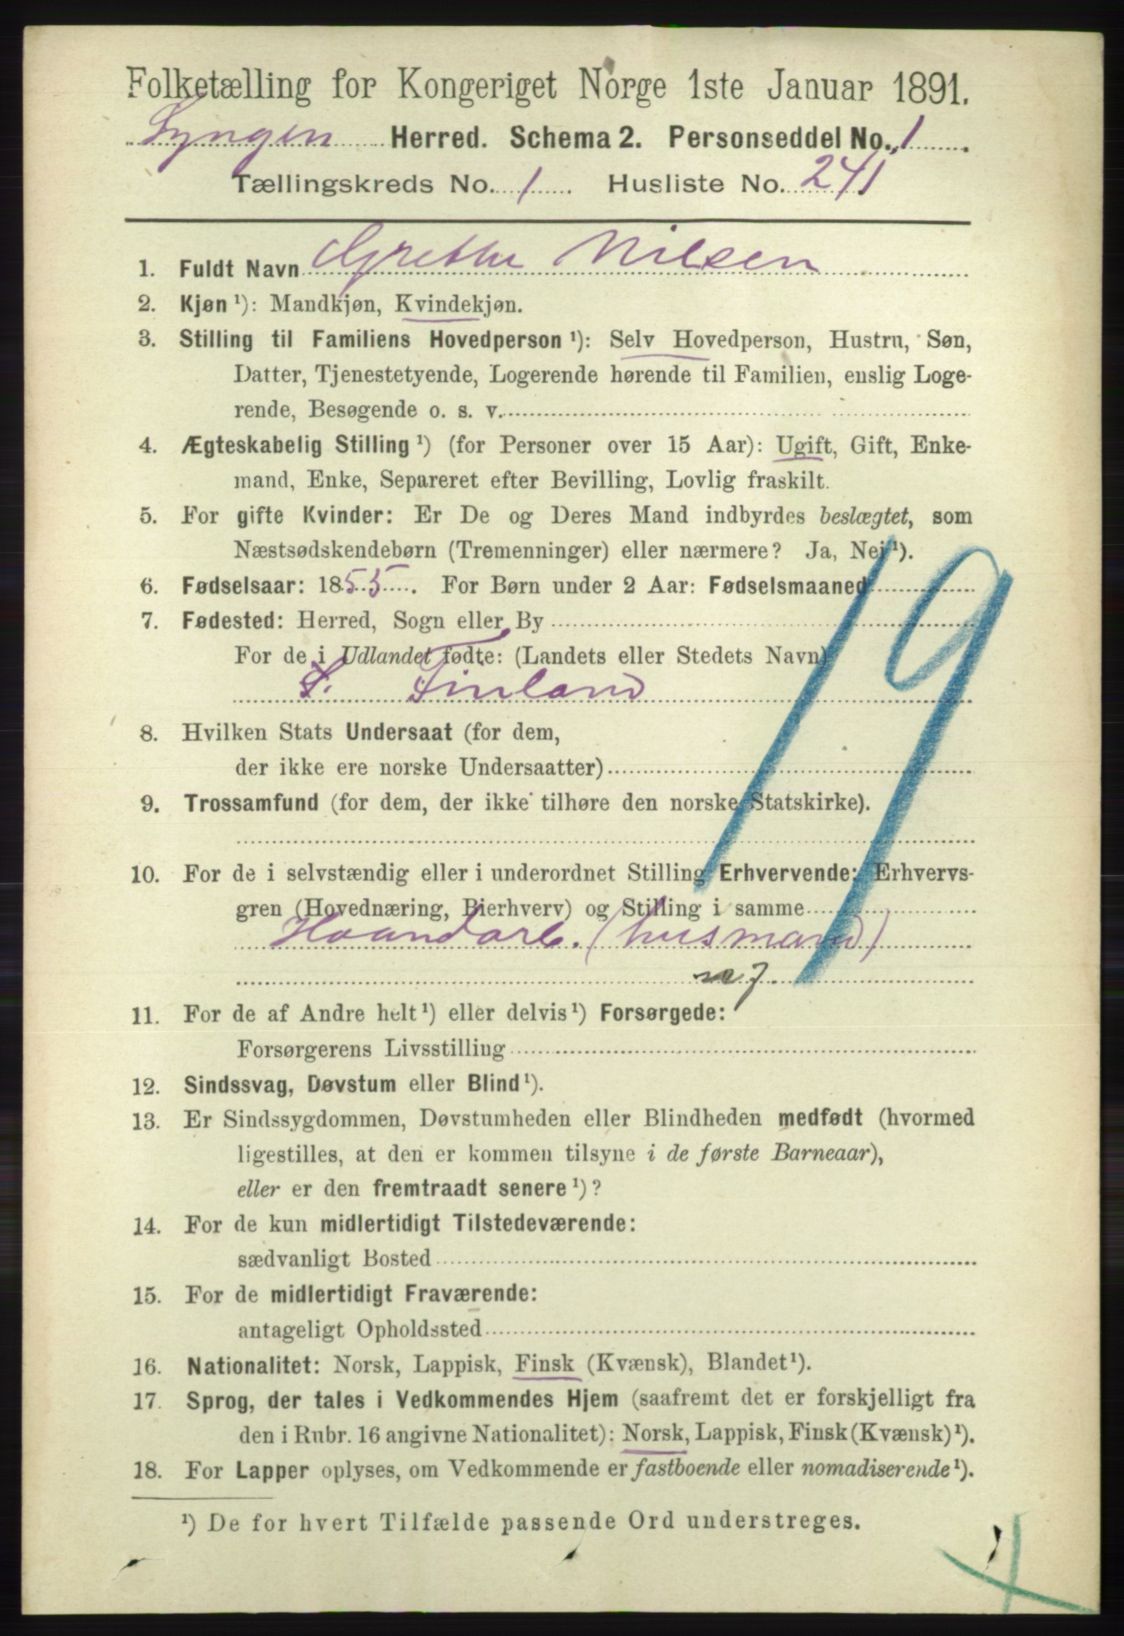 Folketælling for Kongeriget Norge 1ste Januar 1891.
Lyngen Herred. Schema 2. Personseddel No. 1.
Tællingskreds No. 1. Husliste No. 241
1. Fuldt Navn Grethe Nilsen
2. Kjøn ¹): Mandkjøn, Kvindekjøn.
3. Stilling til Familiens Hovedperson ¹): Selv Hovedperson, Hustru, Søn,
Datter, Tjenestetyende, Logerende hørende til Familien, enslig Loge-
rende, Besøgende o. s. v.
4. Ægteskabelig Stilling ¹) (for Personer over 15 Aar): Ugift, Gift, Enke-
mand, Enke, Separeret efter Bevilling, Lovlig fraskilt.
5. For gifte Kvinder: Er De og Deres Mand indbyrdes beslægtet, som
Næstsødskendebørn (Tremenninger) eller nærmere? Ja, Nei ¹).
6. Fødselsaar: 1855. For Børn under 2 Aar: Fødselsmaaned
7. Fødested: Herred, Sogn eller By
For de i Udlandet fødte: (Landets eller Stedets Navn)
Finland
19
8. Hvilken Stats Undersaat (for dem,
der ikke ere norske Undersaatter)
9. Trossamfund (for dem, der ikke tilhøre den norske Statskirke).
10. For de i selvstændig eller i underordnet Stilling Erhvervende: Erhvervs-
gren (Hovednæring, Bierhverv) og Stilling i samme
Haandarb. (husmand)
11. For de af Andre helt ¹) eller delvis ¹) Forsørgede:
Forsørgerens Livsstilling
12. Sindssvag, Døvstum eller Blind ¹).
13. Er Sindssygdommen, Døvstumheden eller Blindheden medfødt (hvormed
ligestilles, at den er kommen tilsyne i de første Barneaar),
eller er den fremtraadt senere ¹)?
14. For de kun midlertidigt Tilstedeværende:
sædvanligt Bosted
15. For de midlertidigt Fraværende:
antageligt Opholdssted
16. Nationalitet: Norsk, Lappisk, Finsk (Kvænsk), Blandet ¹).
17. Sprog, der tales i Vedkommendes Hjem (saafremt det er forskjelligt fra
den i Rubr. 16 angivne Nationalitet): Norsk, Lappisk, Finsk (Kvænsk) ¹).
18. For Lapper oplyses, om Vedkommende er fastboende eller nomadiserende ¹).
¹) De for hvert Tilfælde passende Ord understreges.